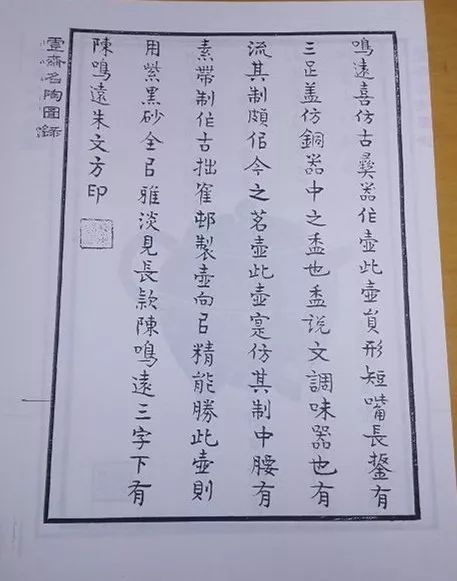 鳴遠喜仿古彝器作壺此壺員形短嘴長鋬有
三足盖仿銅器中之盉也盉说文調味器也有
流其制頗佀今之茗壺此壺寔仿其制中腰有
素帶制作古拙崔邨製壺向㠯精能勝此壺則
用紫黑砂全㠯雅淡見長款陳鳴遠三字下有
陳鳴遠朱文方印
齋名陶圖録